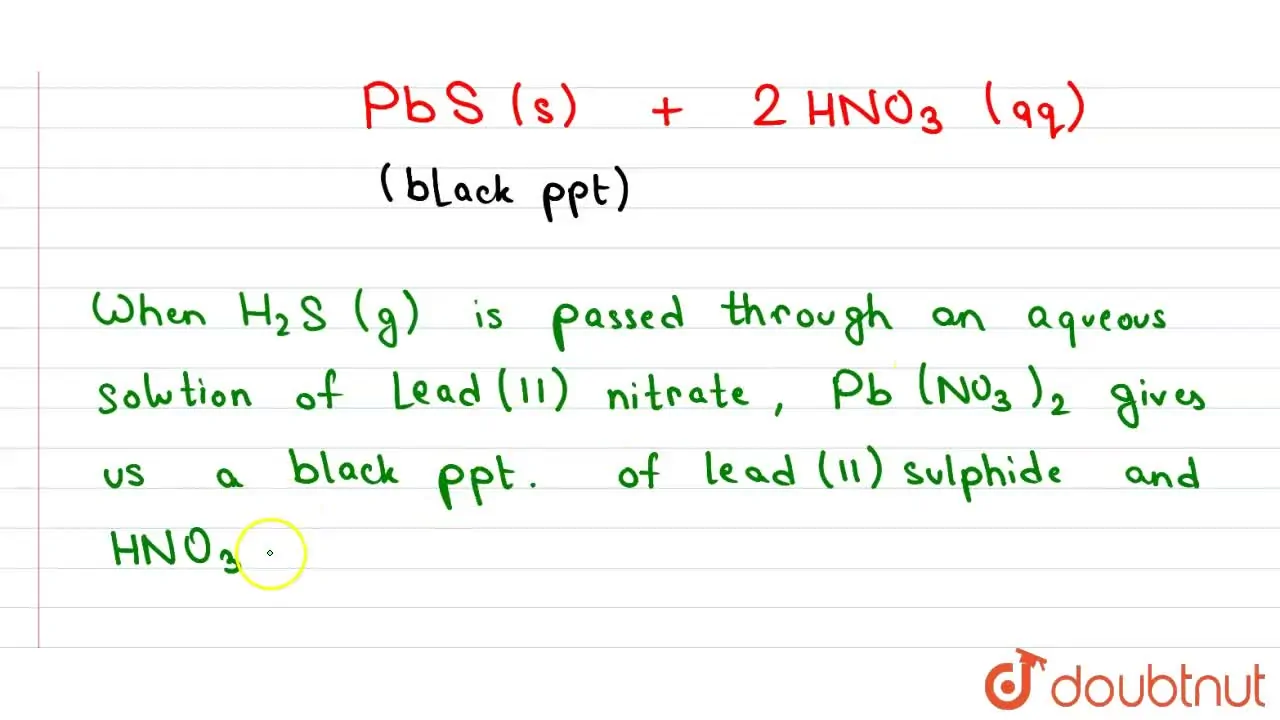 PbS (s) + 2 HNO₃ (aq)
(black ppt)
When H₂S (g) is passed through an aqueous
solution of Lead (11) nitrate, Pb (NO₃)₂ gives
us a black ppt. of lead (11) sulphide and
HNO₃
doubtnut